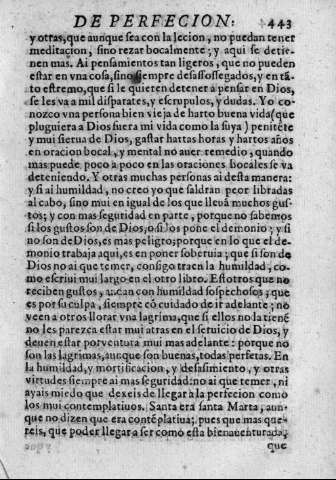 DE PERFECION. 443
y otras, que aunque sea con la lecion, no puedan tener
meditacion, sino rezar bocalmente; y aqui se detie-
nen mas. Ai pensamientos tan ligeros, que no pueden
estar en vna cosa, sino siempre desassossegados, y en tã-
to estremo, que si le quieren detener a pensar en Dios,
se les va a mil disparates, y escrupulos, y dudas. Yo co-
nozco vna persona bien vieja de harto buena vida (que
pluguiera a Dios fuera mi vida como la suya) penitẽte
y mui sierua de Dios, gastar hartas horas y hartos años
en oracion bocal, y mental no auer remedio, quando
mas puede poco a poco en las oraciones bocales se va
deteniendo. Y otras muchas personas ai desta manera:
y si ai humildad, no creo yo que saldran peor libradas
al cabo, sino mui en igual de los que lleuã muchos gus-
tos; y con mas seguridad en parte, porque no sabemos
si los gustos son de Dios, o si los pone el demonio; y si
no son de Dios, es mas peligro; porque en lo que el de-
monio trabaja aqui, es en poner soberuia; que si son de
Dios no ai que temer, consigo traen la humildad, co-
mo escriui mui largo en el otro libro. Estotros que no
reciben gustos, andan con humildad sospechosos, que
es por su culpa, siempre cõ cuidado de ir adelante; no
veen a otros llorar vna lagrima, que si ellos no la tienẽ
no les parezca estar mui atras en el seruicio de Dios, y
deuen estar por ventura mui mas adelante: porque no
son las lagrimas, aunque son buenas, todas perfetas. En
la humildad, y mortificacion, y desasimiento, y otras
virtudes siempre ai mas seguridad: no ai que temer, ni
ayais miedo que dexeis de llegar a la perfecion como
los mui contemplatiuos. Santa era santa Marta, aun-
que no dizen que era contẽplatiua; pues que mas que-
reis, que poder llegar a ser como esta bienauenturada,
que